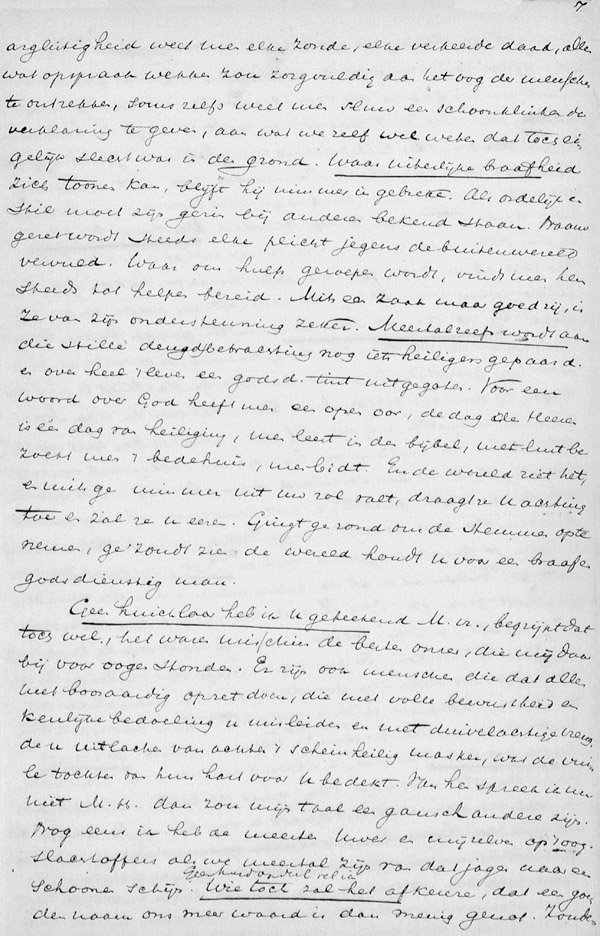 7
arglistigheid weet men elke zonde, elke verkeerde daad, alles
wat opspraak wekken zou zorgvuldig aan het oog der menschen
te onttrekken, soms zelfs weet men sluw een schoonklinkende
verklaring te geven, aan wat we zelf wel weten dat toch ei-
gelijk slecht was in den grond. Waar uiterlijke braafheid
zich toonen kan, blijft hij nimmer in gebreke. Als ordelijk en
stil moet zijn gezin bij anderen bekend staan. Daarom
geret wordt steeds elke plicht jegens de buitenwereld
vervuld. Waar om hulp geroepen wordt, vindt men hem
steeds tot helpen bereid. Mits een zaak maar goed zij, is
ze van zijn ondersteuning zeker. Meestal zelfs wordt aan
die stille deugdbetrachting nog iets heiligers gepaard.
en over heel 't leven een godsd. tint uitgegoten. Voor een
woord over God heeft men een open oor, de dag des Heeren
is een dag van heiliging, men leest in den bijbel, met lust be-
zoekt men 't bedehuis, men bidt. En de wereld ziet het,
en mits ge nimmer uit uw rol valt, draagt ze u achting
toe en zal ze u eeren. Gingt ge rond om de stemmen op te
nemen, ge zoudt zien: de wereld houdt u voor een braaf en
godsdienstig man.
Geen huichelaar heb ik u geteekend M. H., begrijpt dat
toch wel, het waren misschien de besten onzer, die mij daar
bij voor oogen stonden. Er zijn ook menschen die dat alles
met boosaardig opzet doen, die met volle bewustheid en
kenlijke bedoeling u misleiden en met duivelachtige vreug-
de u uitlachen van achter 't scheinheilig masker, was de vui-
le tochten van hun hart voor u bedekt. Van hen spreek ik nu
niet M. H. dan zou mijn taal een gansch andere zijn.
Nog eens ik heb de meesten uwer en mijzelven op 't oog.
slachtoffers als we meestal zijn van dat jagen naar een
schoonen schijn. Wie toch zal het afkeuren, dat een goe-
den naam ons meer waard is dan menig genot. Zonder